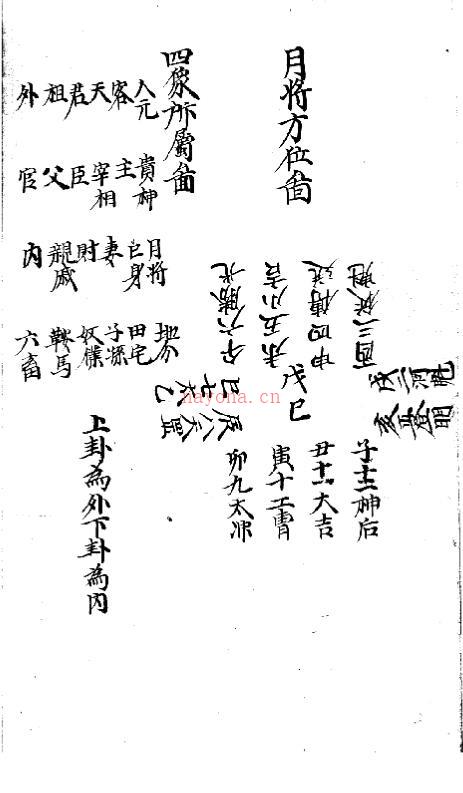 月将方位啚
亥正登明
戌二河魁
酉三從魁
申四傳送
未五小吉
午六勝光
巳七太乙
辰八天罡
卯九太冲
寅十工曹
丑十一大吉
子十二神后
戊己
四象所屬啚
人元 貴神 月将 地分
客 主 己身 田宅
天 宰相 妻 子孫
君 臣 財 奴僕
祖 父 親戚 鞍馬
外 官 内 六畜
上卦為外下卦為内
hayona.cn